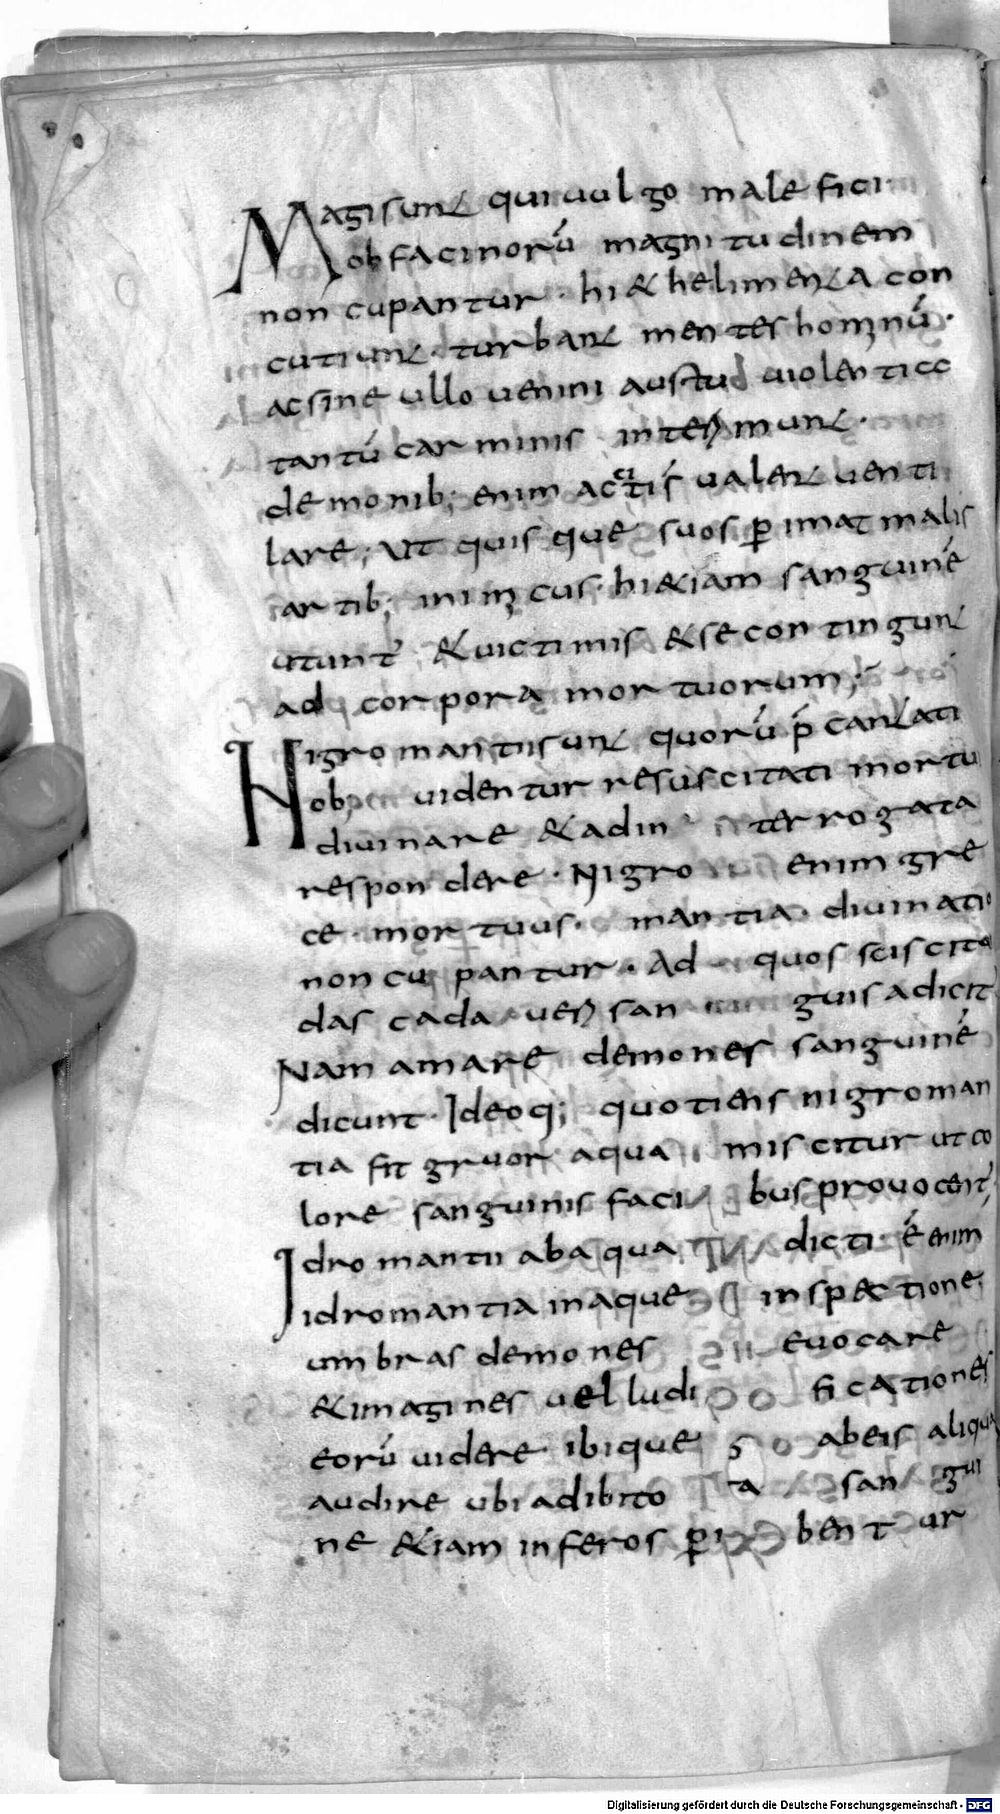 Magisunt qui uulgo malefici
ob facinorū magnitudinem
non cupantur · hi & helimenta con
cutiunt · turbant mentes hominū ·
ac sine ullo ueneni austud uiolentia
tantū carminis interimunt ·
demonib; enim accitis ualent uenti
lare ; Ut quisque suos ꝑimat malis
artib; inimicus · hi &iam sanguinē
utunt̄ & uictimis & se contingunt
ad corpora mortuorum ;
Nigromantii sunt quorū p̄cantati
ob; uidentur resuscitati mortu
diuinare & ad interrogata
respondere · Nigro enim gre
ce · mortuus · mantia · diuinatio
noncupantur · Ad quos sciscita
das cadaueri sanguis adicit̄
Nam amare demones sanguinē
dicunt · Ideoq; quotiens nigroman
tia fit gruor aqua miscitur ut co
lore sanguinis faci bus prouocent̄
Idromantii ab aqua dicti · ē enim
idromantia in aque inspectione
umbras demones euocare
& imagines uel ludificationes
eorū uidere ibique ab eis aliqua
audire ubi adibito sangui
ne &iam inferos ꝑibentur
Digitalisierung gefördert durch die Deutsche Forschungsgemeinschaft - DFG